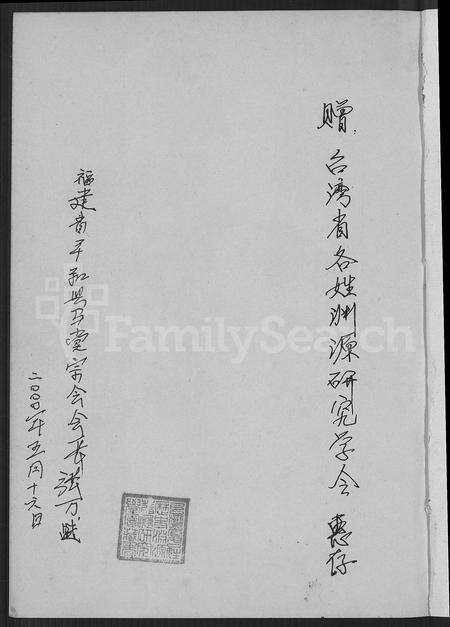 赠:台湾省各姓渊源研究学会 惠存
福建省平和县万党宗会会长 张万
二〇〇〇年五月十六日
FamilySearch